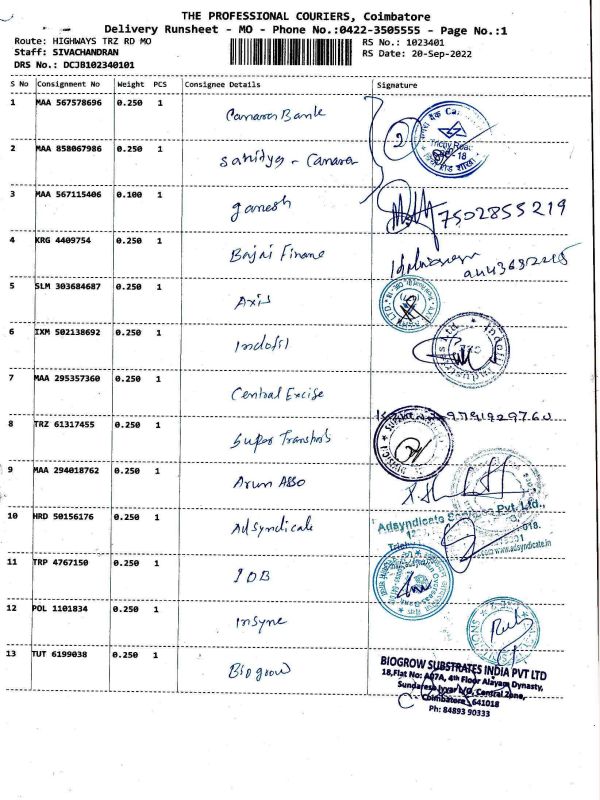 THE PROFESSIONAL COURIERS, Coimbatore
Delivery Runsheet - MO - Phone No.:0422-3505555 - Page No.:1
Route: HIGHWAYS TRZ RD MO
RS No.: 1023401
Staff: SIVACHANDRAN
RS Date: 20-Sep-2022
DRS No.: DCJB102340101
S No Consignment No Weight PCS Consignee Details Signature
1 MAA 567578696 0.250 1 Canara Bank
2 MAA 858067986 0.250 1 - Canara 2
3 MAA 567115406 0.100 1 ganesh 7502855219
4 KRG 4409754 0.250 1 Bajaj Finance
5 SLM 303684687 0.250 1 Axis
6 IXM 502138692 0.250 1 Indofil
7 MAA 295357360 0.250 1 Central Excise
8 TRZ 61317455 0.250 1 Super Transports
9 MAA 294018762 0.250 1 Arun Asso
10 HRD 50156176 0.250 1 Adsyndicate
Adsyndicate Pvt. Ltd.,
www.adsyndicate.in
11 TRP 4767150 0.250 1 IOB
12 POL 1101834 0.250 1 Insyne
13 TUT 6199038 0.250 1 Biogrow
BIOGROW SUBSTRATES INDIA PVT LTD
18,Flat No: A07A, 4th Floor Alayam Dynasty,
Sundaresa Iyyar L/O, Central Zone,
Coimbatore 641018
Ph: 84893 90333